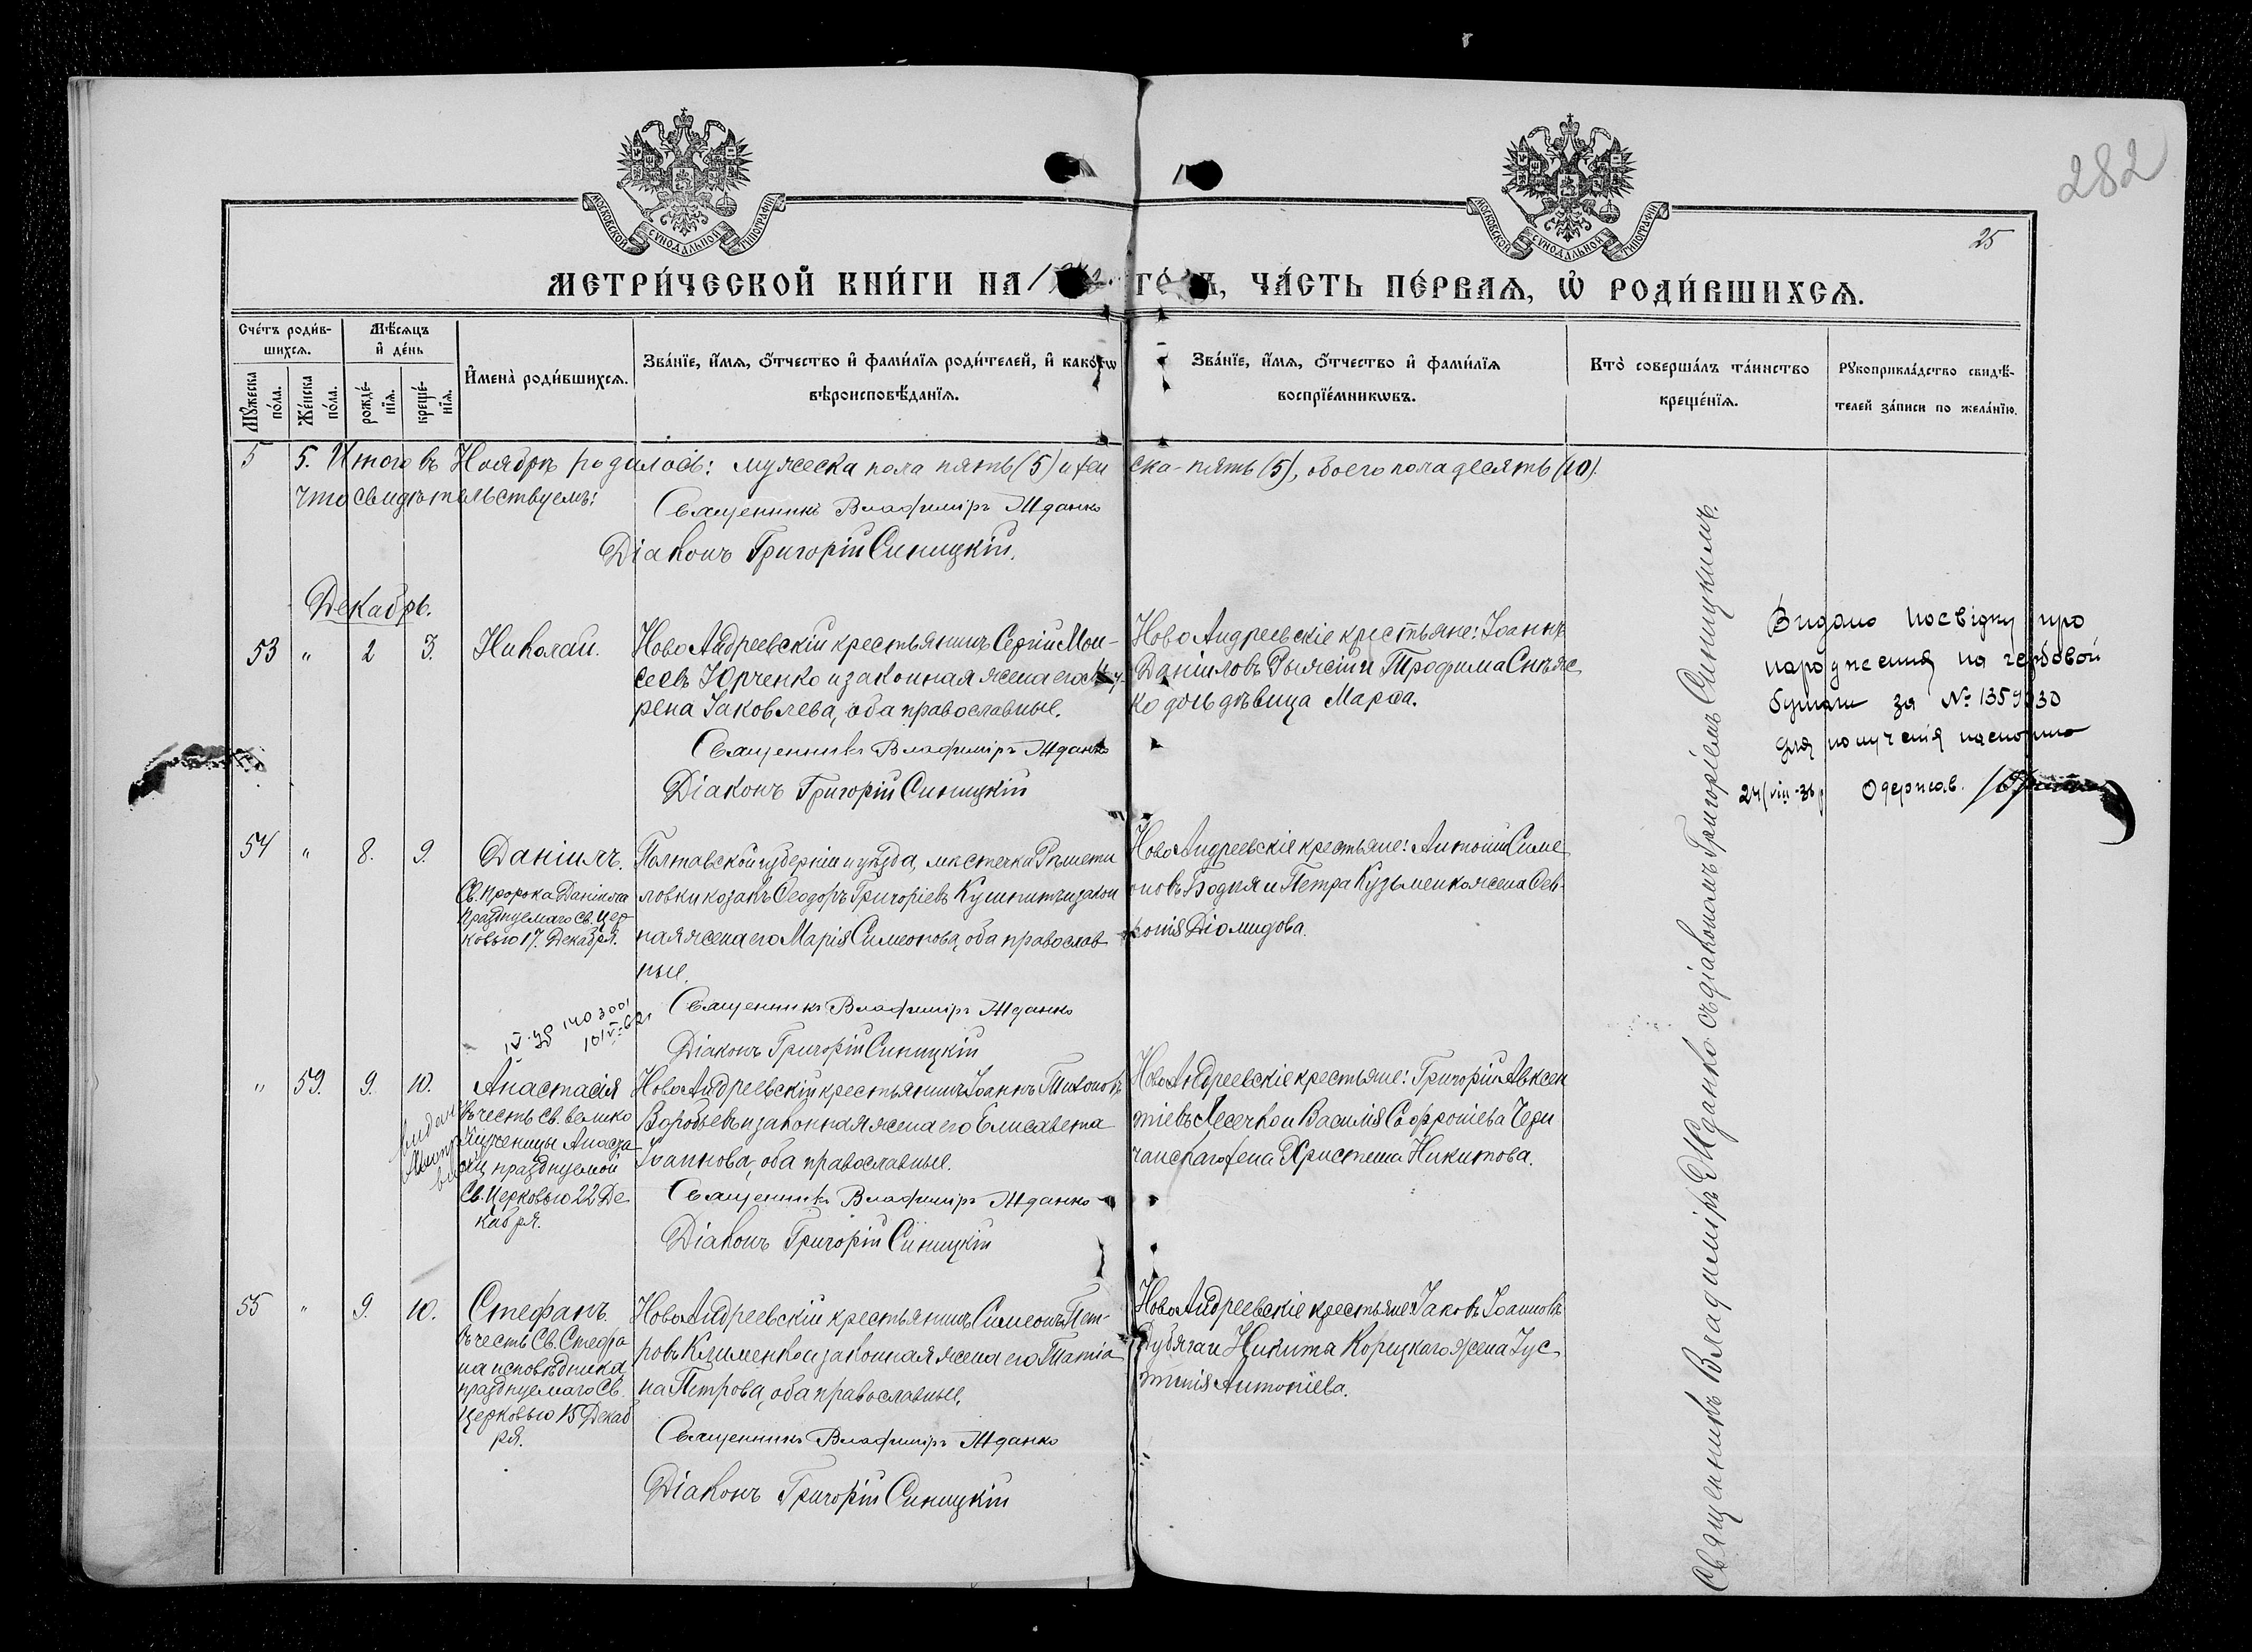 282
25
МОСКОВСКОЙ СѴНОДАЛЬНОЙ ТИПОГРАФІИ
МОСКОВСКОЙ СѴНОДАЛЬНОЙ ТИПОГРАФІИ
МЕТРИ́ЧЕСКОЙ КНИ́ГИ НА ЧА́СТЬ ПЕ́РВАѦ, Ѡ҆ РОДИ́ВШИХСѦ.
Сче́тъ роди́в-
шихсѧ.
Мѣ́сѧцъ
и҆ де́нь
Мꙋ́жеска
по́ла.
Же́нска
по́ла.
рожде́-
нїѧ.
креще́-
нїѧ.
И҆мена̀ роди́вшихсѧ.
Зва́нїе, и҆́мѧ, ѻ҆́тчество и҆ фами́лїѧ роди́телей, и҆ како́гѡ
вѣроисповѣ́данїѧ.
Зва́нїе, и҆́мѧ, ѻ҆́тчество и҆ фами́лїѧ
воспрїе́мникѡвъ.
Кто̀ соверша́лъ та́инство
креще́нїѧ.
Рꙋкоприкла́дство свидѣ́-
телей за́писи по жела́нїю.
5 5. Итого въ Ноябрѣ родилось: мужеска пола пять (5) и жен
ска - пять (5), обоего пола десять (10).
Что свидѣтельствуемъ:
Священникъ Владиміръ Жданко
Діаконъ Григорій Синицкій.
Декабрь.
53 " 2 3. Николай.
Ново Андреевскій крестьянинъ Сергій Мои-
сеевъ Юрченко и законная жена его
рена Іаковлева, оба православные.
Священникъ Владиміръ Жданко
Діаконъ Григорій Синицкій
Ново Андреевскіе крестьяне: Іоаннъ
Даніиловъ и Трофима Снѣж
ко дочь дѣвица Марѳа.
Видано посвідку про
народження на гербовой
бумаги за № 1359930
для получения паспорта
24/VIII-36 Одержав.
54 " 8. 9. Даніилъ.
Св. Пророка Даніила
празднуемаго Св. Цер-
ковью 17. Декабря.
Полтавской губерніи и уѣзда, мѣстечка Рѣшети
ловки козакъ Ѳеодоръ Григоріевъ Кушнитъ и закон
ная жена его Марія Симеонова, оба православ
ные.
Священникъ Владиміръ Жданко
Діаконъ Григорій Синицкій
Ново Андреевскіе крестьяне: Антоній Симе
оновъ Бодня и Петра Кузьменко жена Фев-
ронія Діомидова.
" 59. 9. 10. Анастасія
Въ честь Св. велико
мученицы Анаста
сіи, празднуемой
Св. Церковью 22 Де
кабря.
Ново Андреевскій крестьянинъ Іоаннъ Тихоновъ
Воробьевъ и законная жена его Елисавета
Іоаннова, оба православные.
Священникъ Владиміръ Жданко
Діаконъ Григорій Синицкій
Ново Андреевскіе крестьяне: Григорій Авксен
тіевъ Лесечко и Василія Софроніева Чери
жена Христина Никитова.
55 " 9. 10. Стефанъ.
Въ честь Св. Стефа
на исповѣдника,
празднуемаго Св.
Церковью 15 Декаб
ря.
Ново Андреевскій крестьянинъ Симеонъ Пет-
ровъ Клименко и законная жена его Татіа
на Петрова, оба православные.
Священникъ Владиміръ Жданко
Діаконъ Григорій Синицкій
Ново Андреевскіе крестьяне Іаковъ Іоанновъ
Дубяга и Никита Корицкаго жена Іус
тинія Антоніева.
Священникъ Владиміръ Жданко съ діакономъ Григоріемъ Синицкимъ.